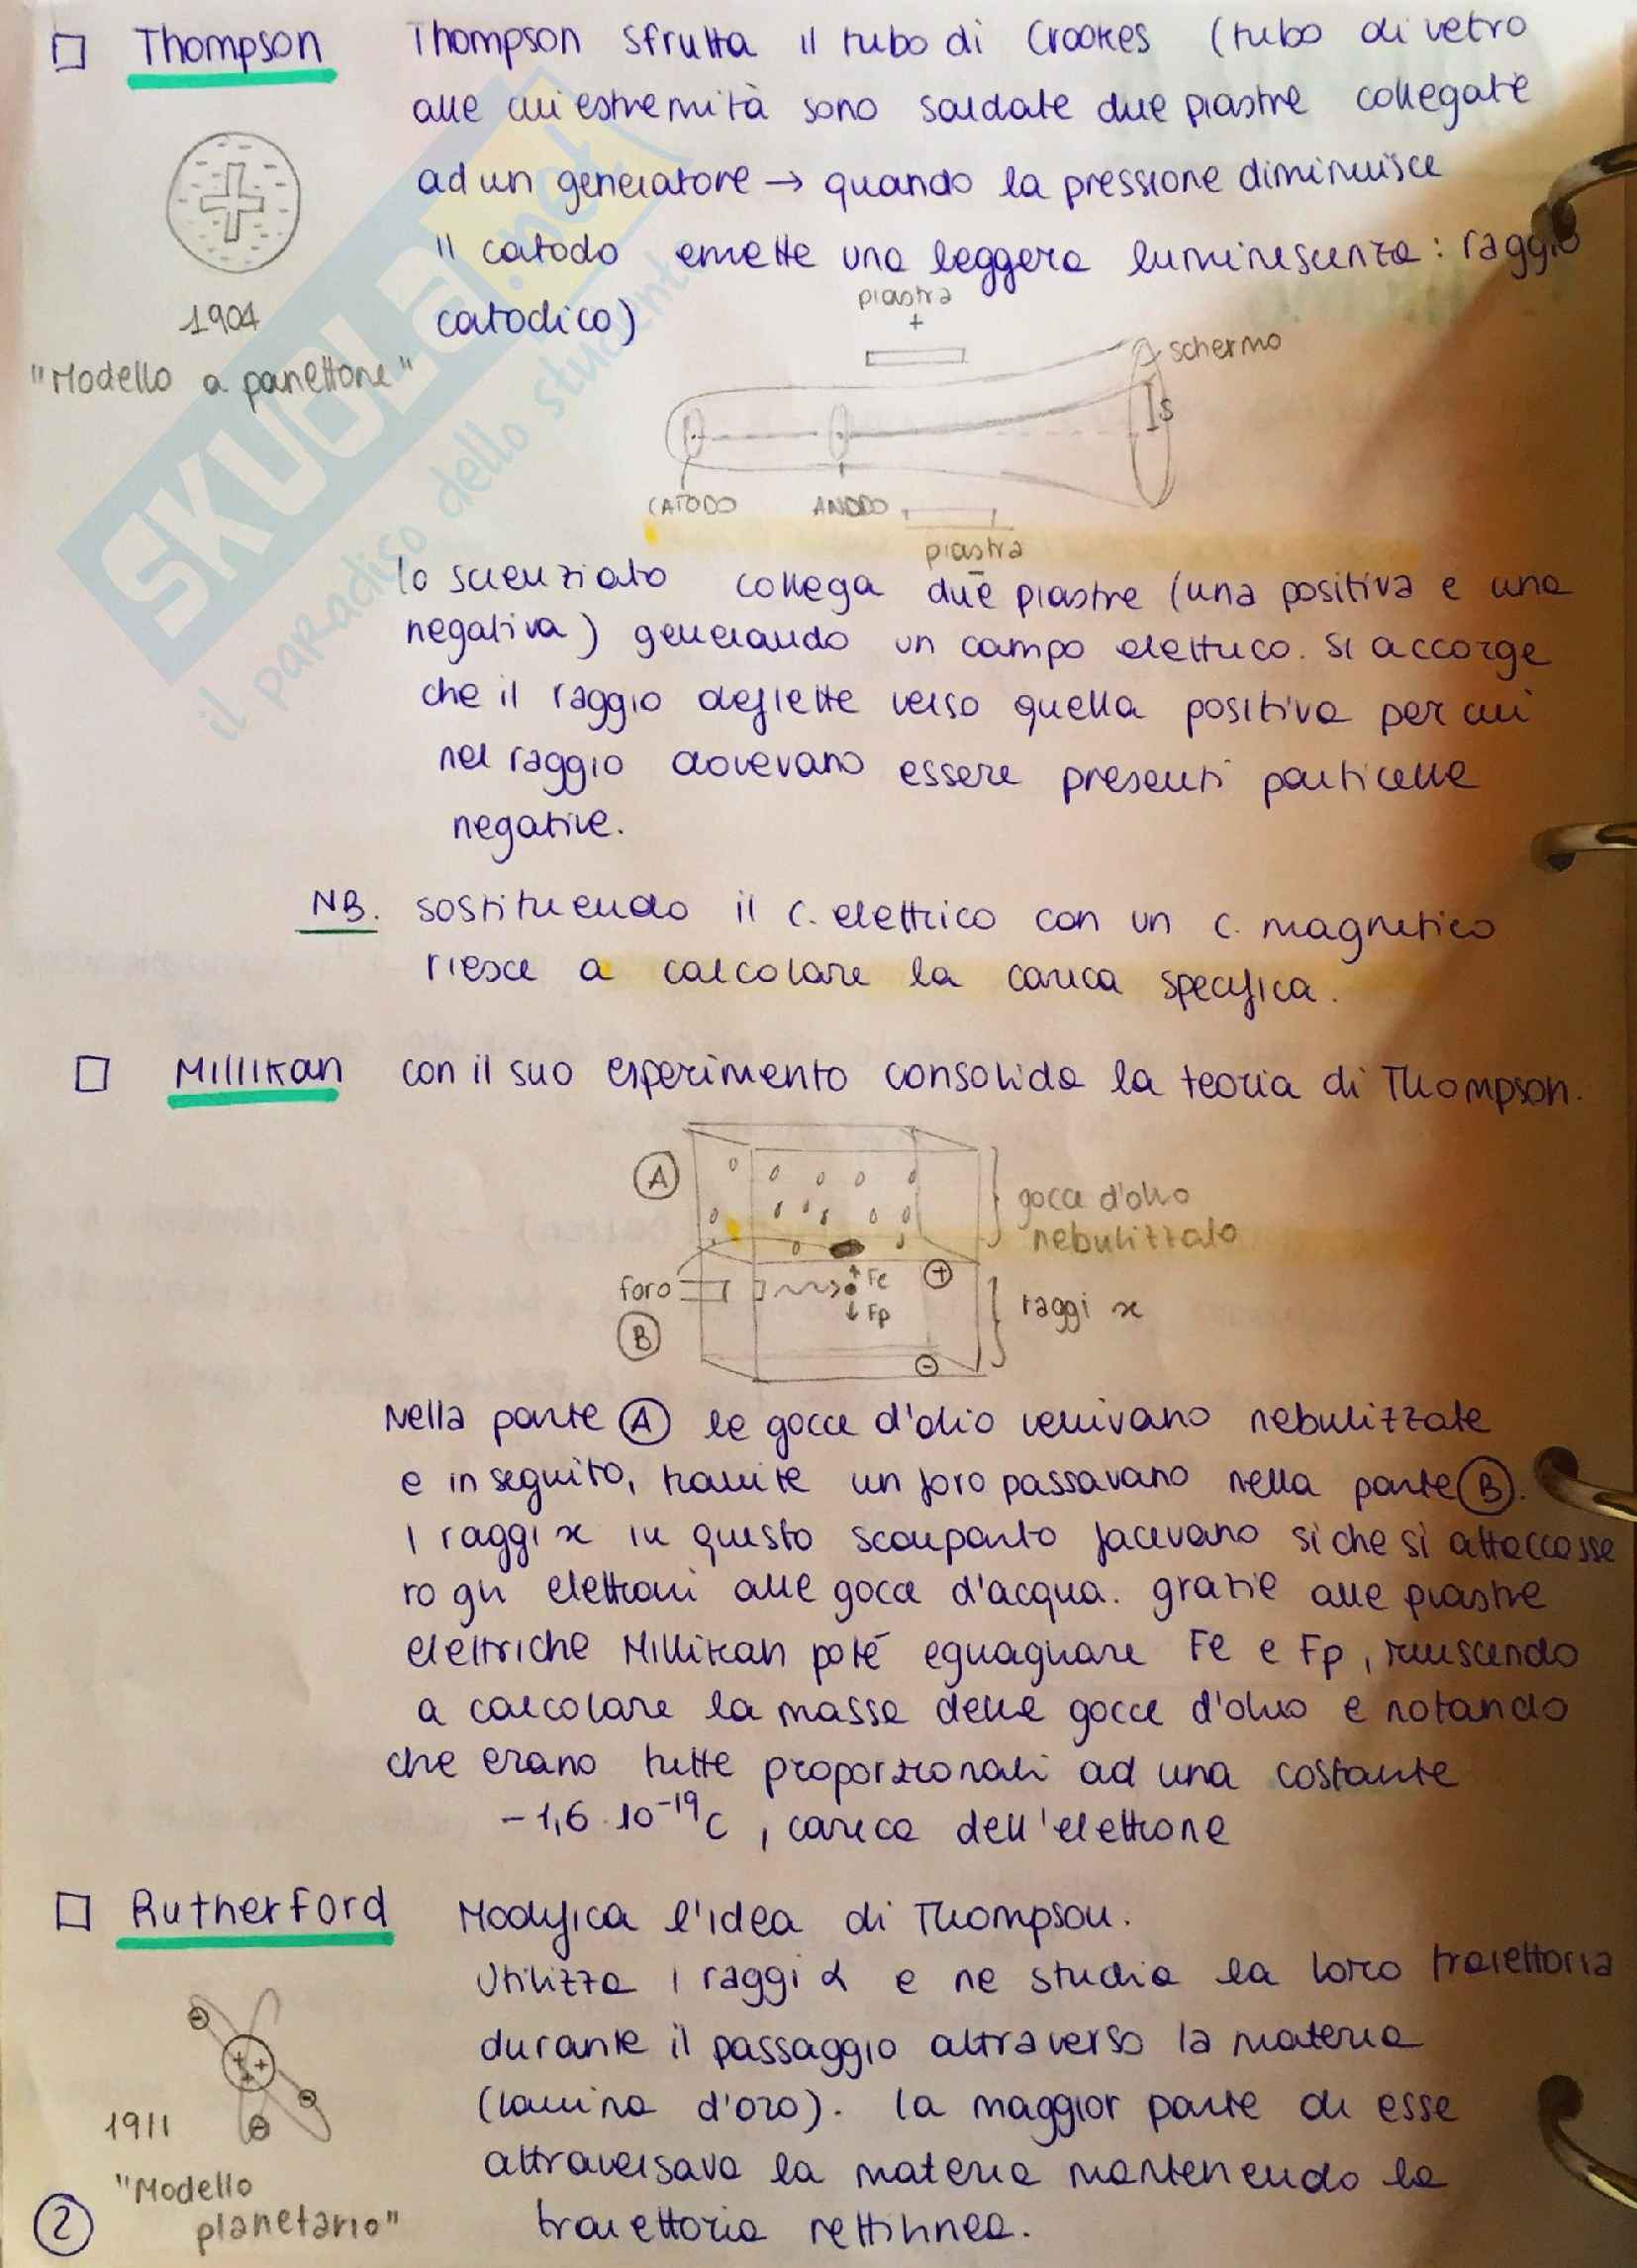 □ Thompson Thompson sfrutta il tubo di Crookes (tubo di vetro
alle cui estremità sono saldate due piastre collegate
ad un generatore → quando la pressione diminuisce
il catodo emette una leggera luminescenza: raggio
catodico)
1904
"Modello a panettone"
piastra
+
schermo
S
CATODO ANODO
piastra
−
lo scienziato collega due piastre (una positiva e una
negativa) generando un campo elettrico. Si accorge
che il raggio deflette verso quella positiva per cui
nel raggio dovevano essere presenti particelle
negative.
NB. sostituendo il c. elettrico con un c. magnetico
riesce a calcolare la carica specifica.
□ Millikan con il suo esperimento consolida la teoria di Thompson.
A
gocce d'olio
nebulizzato
foro
Fe +
Fp
raggi x
B
−
Nella parte A le gocce d'olio venivano nebulizzate
e in seguito, tramite un foro passavano nella parte B.
I raggi x in questo scomparto facevano si che si attaccasse
ro gli elettroni alle gocce d'acqua. grazie alle piastre
elettriche Millikan poté eguagliare Fe e Fp, riuscendo
a calcolare la massa delle gocce d'olio e notando
che erano tutte proporzionali ad una costante
-1,6·10⁻¹⁹C, carica dell'elettrone
□ Rutherford Modifica l'idea di Thompson.
Utilizza i raggi α e ne studia la loro traiettoria
durante il passaggio attraverso la materia
(lamina d'oro). la maggior parte di esse
attraversava la materia mantenendo la
traiettoria rettilinea.
1911
"Modello
planetario"
2
SKUOLA.net
il paradiso dello studente